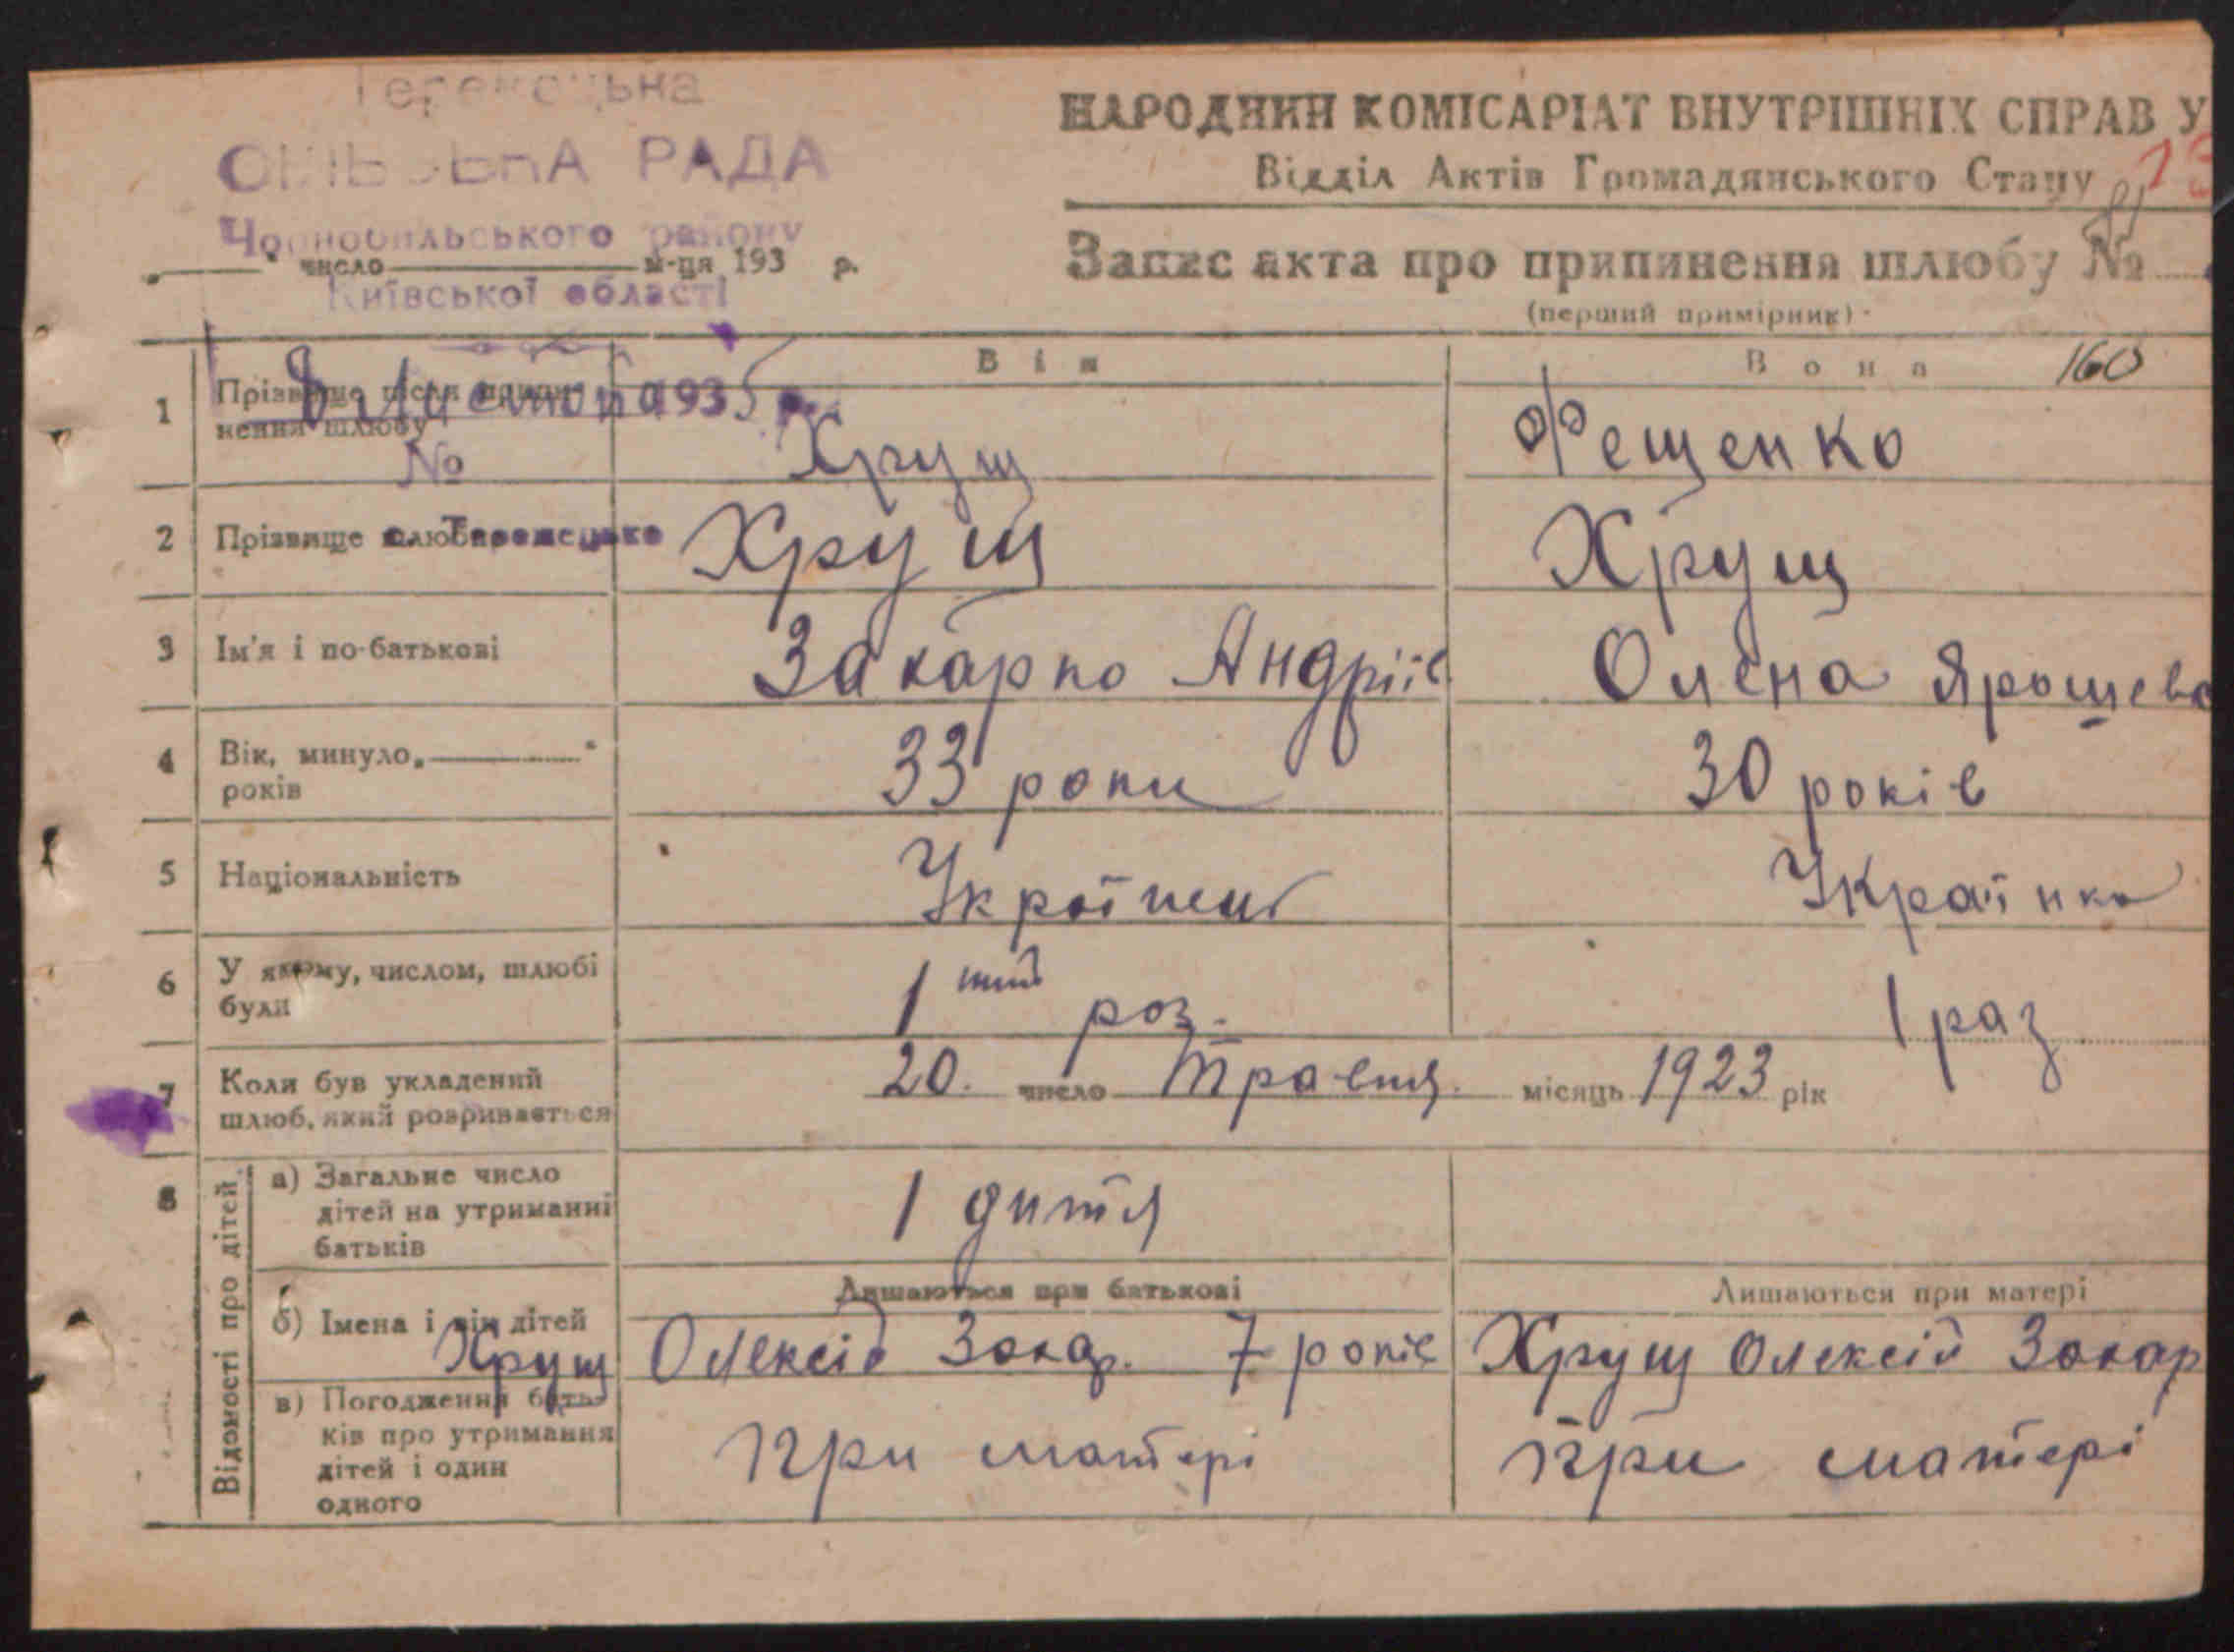 СІЛЬСЬКА РАДА
Чорнобильського району
Київської області
число м-ця 193 р.
НАРОДНИЙ КОМІСАРІАТ ВНУТРІШНІХ СПРАВ У
Відділ Актів Громадянського Стану
Запис акта про припинення шлюбу №
(перший примірник)
Він
Вона 160
1 Прізвище після припинення шлюбу
8 Листопа 1935 р.
№
Хрущ
Фещенко
2 Прізвище
Хрущ
Хрущ
3 Ім'я і по-батькові
Захарко Андріїв
Олена Ярошева
4 Вік, минуло „ “
років
33 роки
30 років
5 Національність
Українець
Українка
6 У якому, числом, шлюбі
були
1 роз.
1 раз
7 Коли був укладений
шлюб, який розривається
20. число Травня. місяць 1923 рік
8 Відомості про дітей
а) Загальне число
дітей на утриманні
батьків
1 дитя
Лишаються при батькові
Лишаються при матері
б) Імена і вік дітей
Хрущ Олексій Захар. 7 років
Хрущ Олексій Захар
в) Погодження бать-
ків про утримання
дітей і один
одного
При матері
при матері